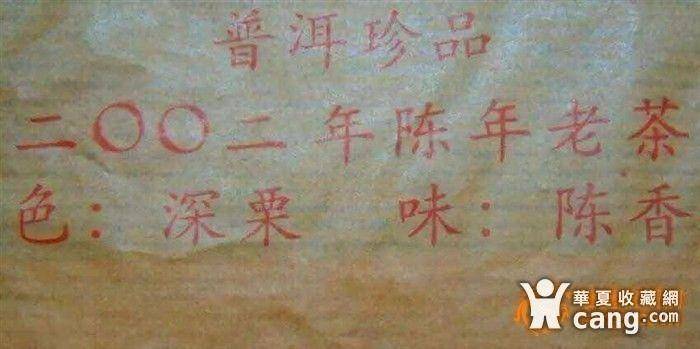 普洱珍品
二〇〇二年陈年老茶
色：深栗 味：陈香
華夏收藏網
cang.com